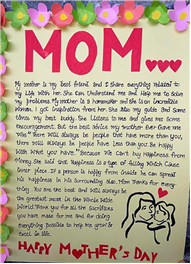 MOM...
My mother is my best friend and I share everything related to
my life with her. She can Understand me and Help me to Solve
my problems. My mother is a homemaker and she is an incredible
Woman. I got inspiration from her. She is also my guide and Some
times my best buddy. She Listens to me and gives me Some
encouragement. But the best advice my mother Ever Gave me
was "There will always be people that have more than you,
there will always be people have less than you. Be happy
With what you have." Because We Can't buy happiness from
Money. She said that Happiness is a type of
inner piece. If a person is happy from inside he can spread
his happiness in his surrounding also. Mom Thanks for every
thing. You are the best and will always be
the greatest mom in the Whole Wide
World. Thank you for all the Sacrifices
you have made for me and for doing
everything possible to help me grow &
in life.
HAPPY MOTHER'S DAY